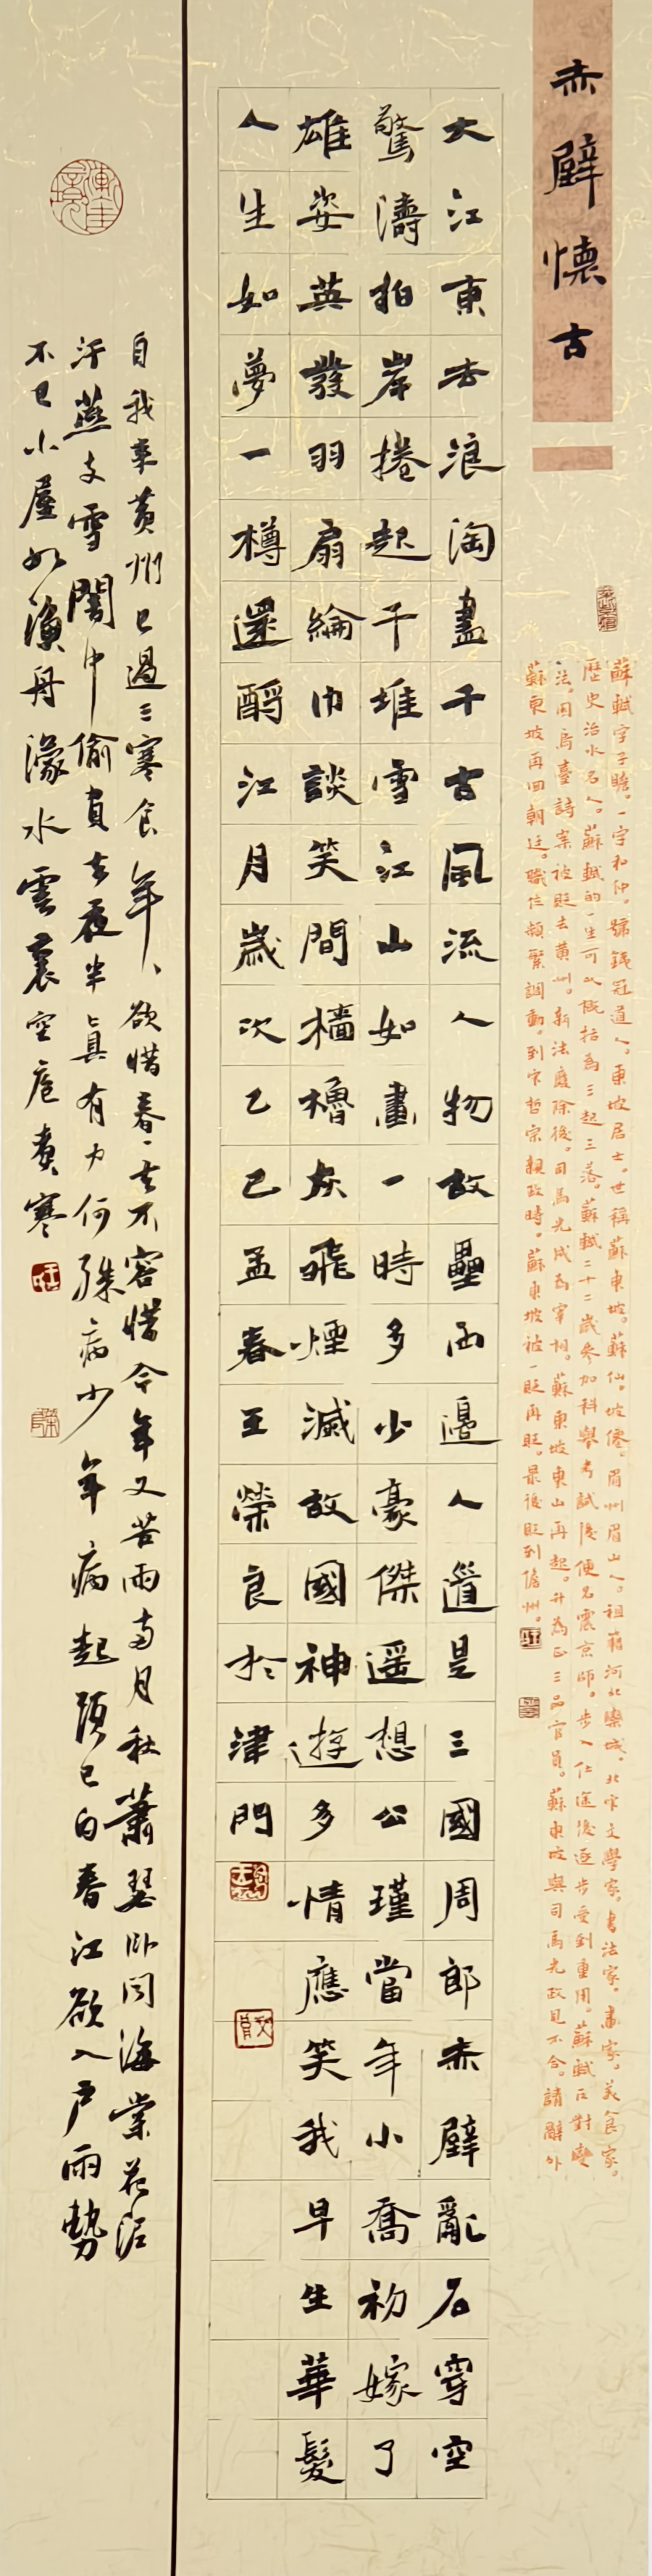 赤壁懷古
蘇軾字子瞻。一字和仲。號鐵冠道人。東坡居士。世稱蘇東坡。蘇仙。坡僊。眉州眉山人。祖籍河北欒城。北宋文學家。書法家。畫家。美食家。
歷史治水名人。蘇軾的一生可以概括為三起三落。蘇軾二十二歲參加科舉考試後便名震京師。步入仕途後逐步受到重用。蘇軾因對變
法。因烏臺詩案被貶去黃州。新法廢除後。司馬光成為宰相。蘇東坡東山再起。升為正三品官員。蘇東坡與司馬光政見不合。請辭外
蘇東坡再回朝廷。職位頻繁調動。到宋哲宗親政時。蘇東坡被一貶再貶。最後貶到儋州。
大江東去浪淘盡千古風流人物故壘西邊人道是三國周郎赤壁亂石穿空
驚濤拍岸捲起千堆雪江山如畫一時多少豪傑遥想公瑾當年小喬初嫁了
雄姿英發羽扇綸巾談笑間檣櫓灰飛煙滅故國神遊多情應笑我早生華髮
人生如夢一樽還酹江月歲次乙巳孟春王榮良於津門
自我來黃州已過三寒食年、欲惜春、去不容惜今年又苦雨兩月秋蕭瑟臥聞海棠花泥
汙燕支雪闇中偷負去夜半真有力何殊病少年病起頭已白春江欲入戶雨勢
不已小屋如漁舟濛水雲裏空庖煮寒